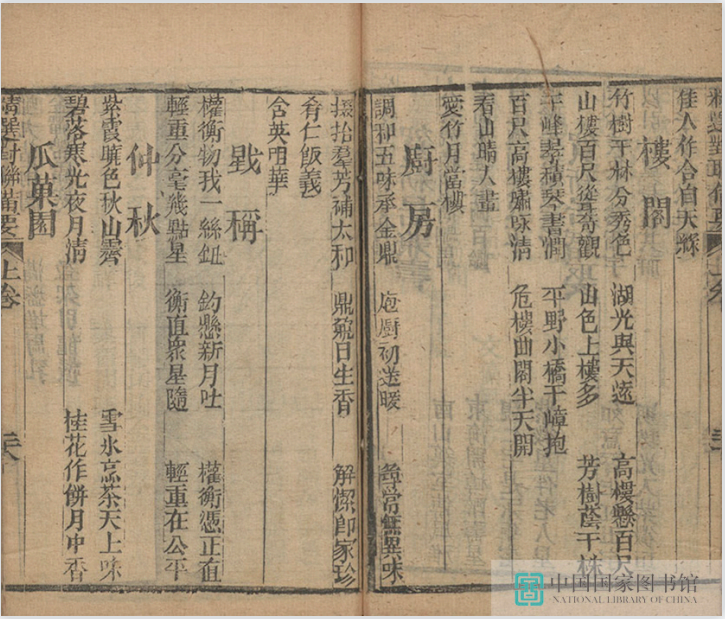 佳人作合自天緣
樓閣
竹樹千林分秀色 湖光與天遠 高樓懸百尺
山樓百尺聳奇觀 山色上樓多 芳樹蔭千株
千峰翠積琴書潤 平野小橋千嶂抱
百尺高樓嘯咏清 危樓曲閣半天開
看山晴入畫
愛竹月當樓
廚房
調和五味承金鼎 庖廚初送暖 尋常無異味
掇拾羣芳補太和 鼎鼐日生香 解潔即家珍
肴仁飯義
含英咀華
戥稱
權衡物我一絲鈕 鈎懸新月吐 權衡憑正直
輕重分毫幾點星 衡直衆星隨 輕重在公平
仲秋
紫霞曉色秋山霽 雪水烹茶天上味
碧落寒光夜月清 桂花作餅月中香
瓜菓園
精選對聯備要 上卷
中国国家图书馆
NATIONAL LIBRARY OF CHINA